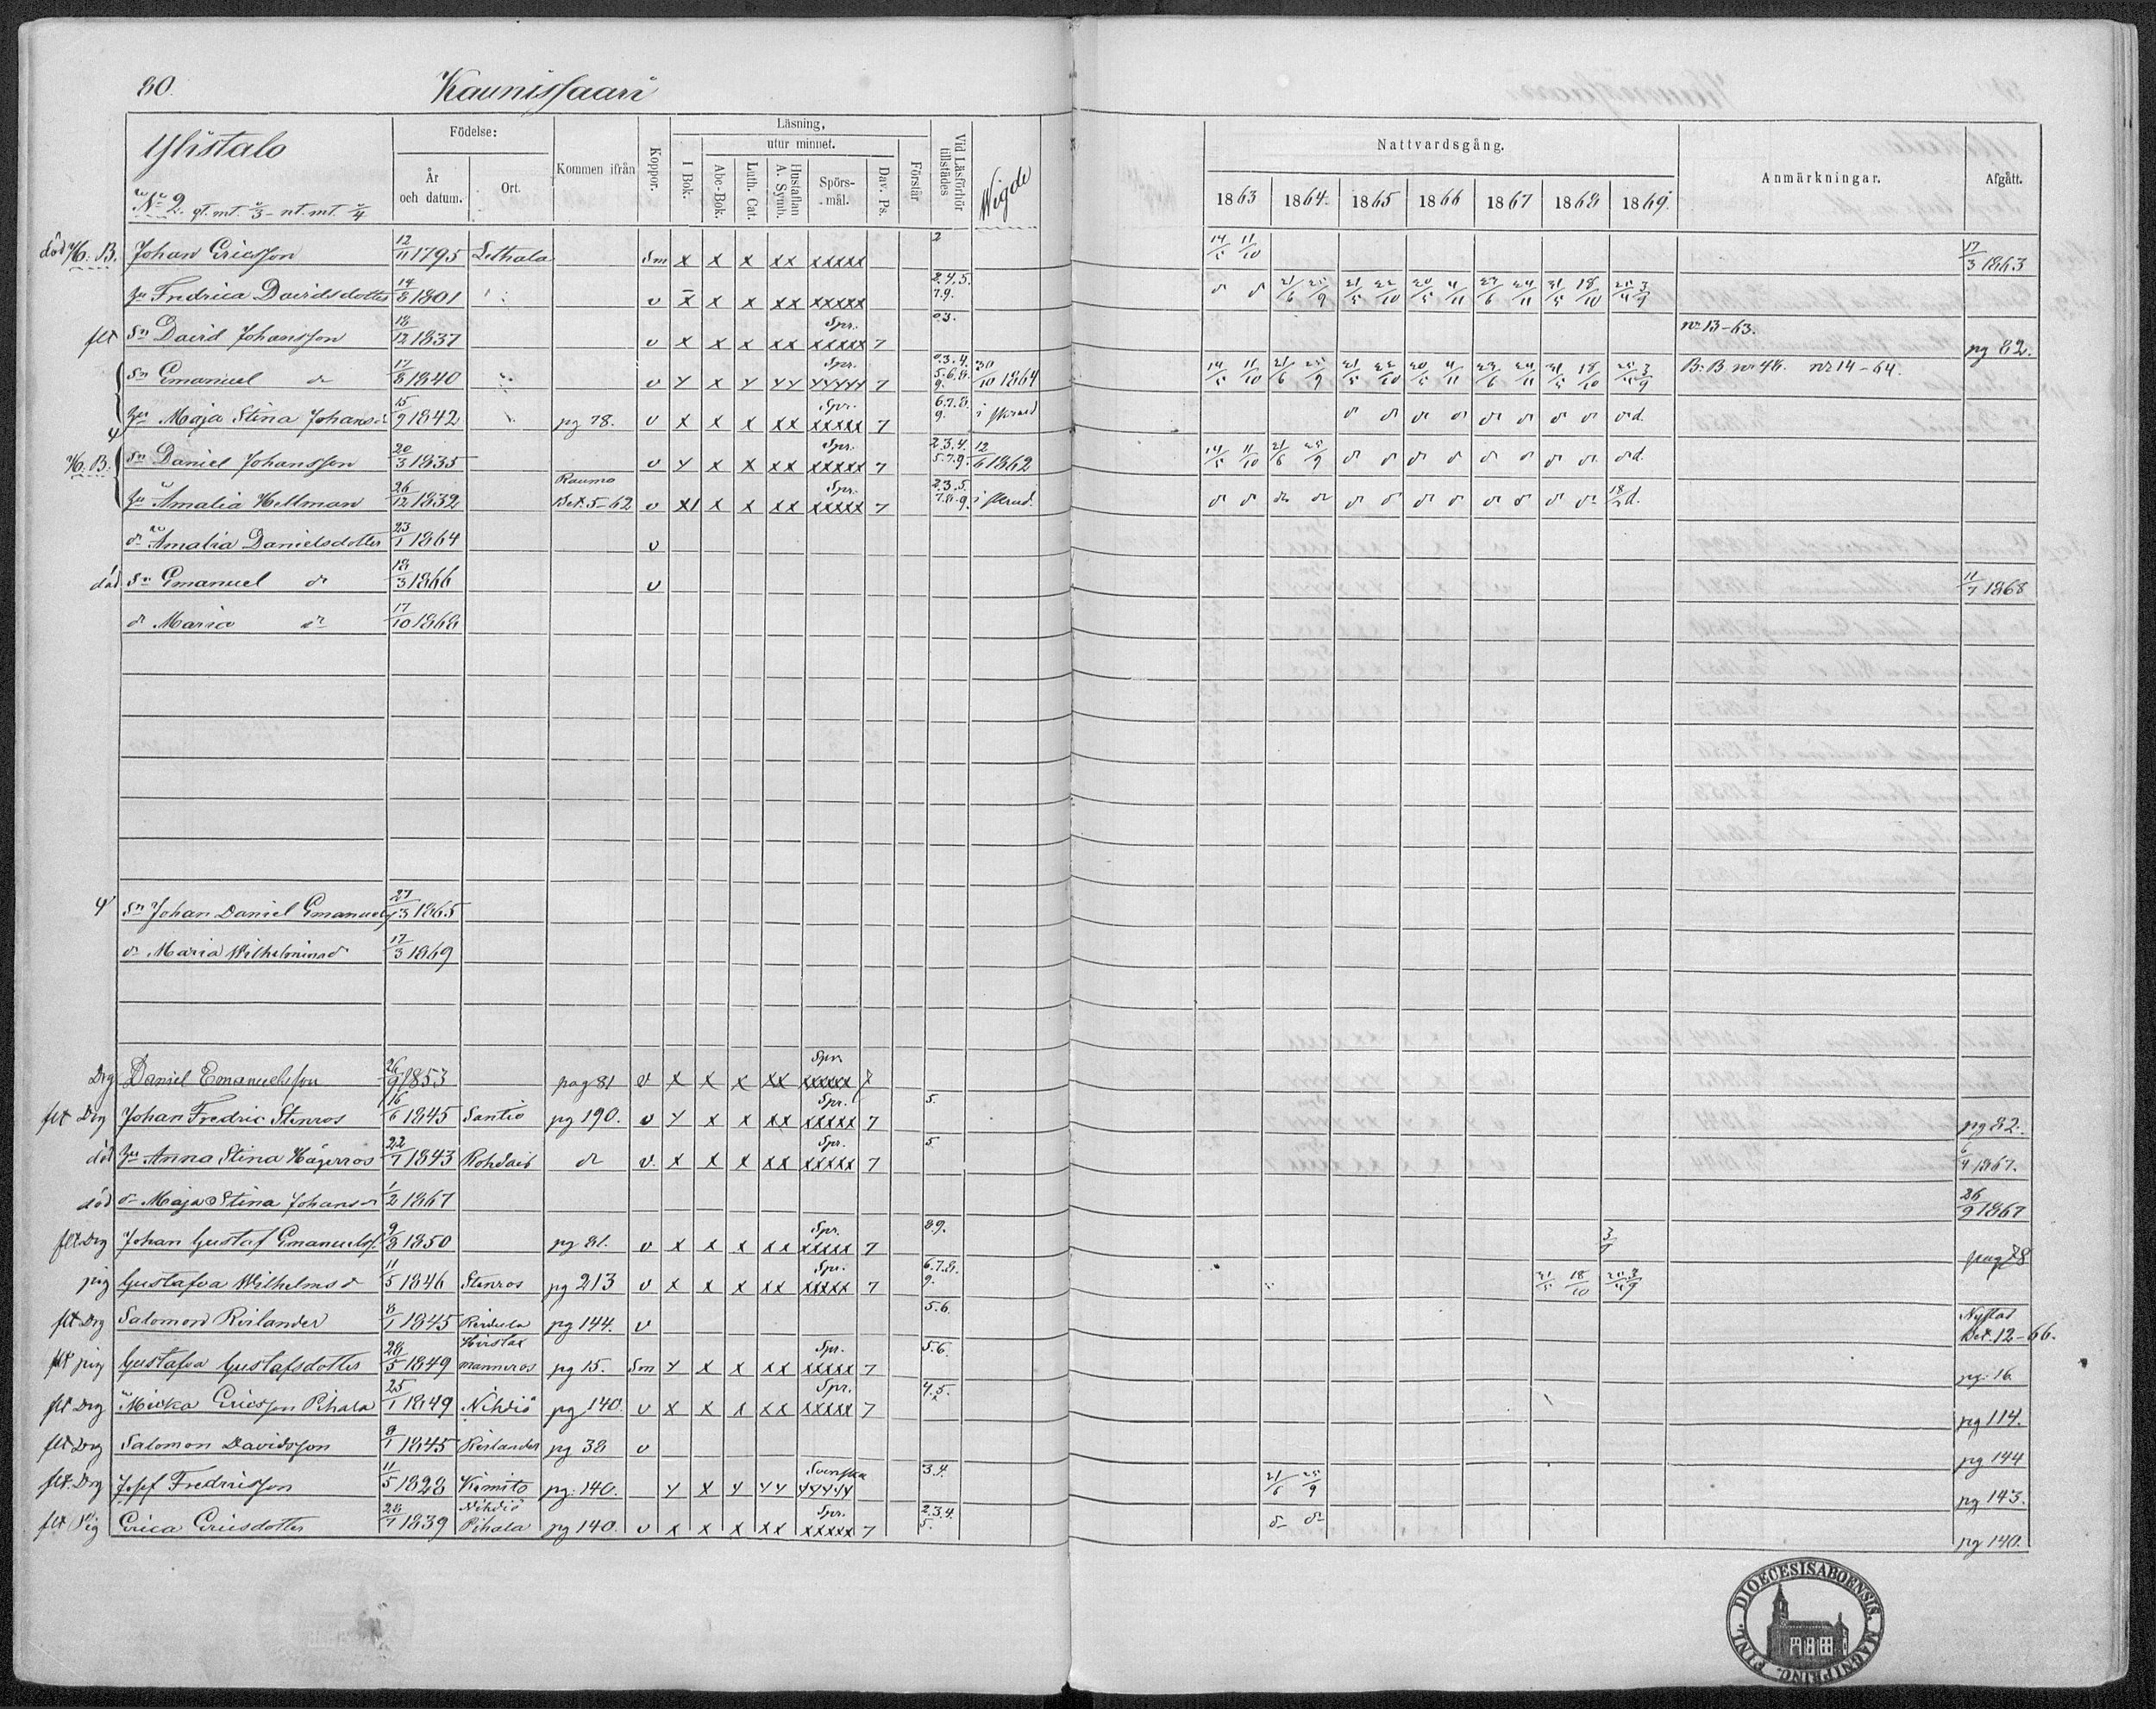 80. Kaunissaari
Ylistalo
No 2. gl. mt. 2/3 - nt. mt. 3/4
Födelse:
År och datum.
Ort.
Kommen ifrån
Koppor.
Läsning,
I Bok.
utur minnet.
Abc-Bok.
Luth. Cat.
Hustaflan A. Symb.
Spörs-mål.
Dav. Ps.
Förstår
Vid Läsförhör tillstädes
Wigde
Nattvardsgång.
1863 1864. 1865 1866 1867 1868 1869.
Anmärkningar.
Afgått.
död B. Johan Ericsson 12/11 1795 Lethala Sm x x x xx xxxxx 2 14/5 11/10 17/3 1863
hu Fredrica Davidsdotter 14/8 1801 v x x x xx xxxxx 2.4.5. 7.9. 21/6 25/9 21/5 22/10 20/5 4/11 23/6 24/11 31/5 18/10 25/4 3/9
flt Sn David Johansson 18/12 1837 v x x x xx Spr. xxxxx 7 2.3. nr 13-63. pg 82.
Sn Emanuel dr 17/8 1840 v y x y yy Spr. yyyyy 7 2.3.4. 5.6.8. 9. 30/10 1864 14/5 11/10 21/6 25/9 21/5 22/10 20/5 4/11 23/6 24/11 31/5 18/10 25/4 3/9 B: B. nr 46. nr 14-64.
hu Maja Stina Johansd 15/9 1842 pg 78. v x x x xx Spr. xxxxx 7 6.7.8. 9.
B. Sn Daniel Johansson 20/3 1835 v y x x xx Spr. xxxxx 7 2.3.4. 5.7.9. 12/6 1862 14/5 11/10 21/6 25/9
hu Amalia Hellman 26/12 1832 Raumo Bet. 5-62 v x x x xx Spr. xxxxx 7 2.3.5. 7.8.9.
dr Amalia Danielsdotter 23/1 1864 v
död Sn Emanuel dr 18/3 1866 v 11/7 1868
dr Maria dr 17/10 1868
Sn Johan Daniel Emanuels 27/3 1865
dr Maria Wilhelmina dr 17/3 1869
Drg Daniel Emanuelsson 26/9 1853 pag 81 v x x x xx Spr xxxxx 7
flt Drg Johan Fredric Stenros 16/6 1845 Santio pg 190. v y x x xx Spr. xxxxx 7 5. pg 82.
död hu Anna Stina Hägerros 22/7 1843 Rohdais dr v. x x x xx Spr. xxxxx 7 5 6/4 1867.
död dr Maja Stina Johansd 1/2 1867 26/9 1867
flt Drg Johan Gustaf Emanuelss. 9/8 1850 pg 81. v x x x xx Spr. xxxxx 7 8.9. 3/9 pag 78
pig Gustafva Wilhelmsd 11/5 1846 Stenros pg 213 v x x x xx Spr. xxxxx 7 6.7.8. 9. 31/5 18/10 25/4 3/9
flt Drg Salomon Rislander 8/1 1845 pg 144. v 5.6. Nystad Bet. 12-66.
flt pig Gustafva Gustafsdotter 28/5 1849 manneros pg 15. Sm y x x xx Spr. xxxxx 7 5.6. pg. 16
flt Drg Micka Ericsson Pihala 25/1 1849 Nihdiö pg 140. v x x x xx Spr. xxxxx 7 4.5. pg 114.
flt Drg Salomon Davidsson 9/1 1845 Rislander pg 38 v pg 144
flt. Drg Josef Fredricsson 11/5 1828 Kimito pg. 140. y x y yy Svenska yyyyy 3.4. 21/6 25/9 pg 143.
flt Pig Erica Ericsdotter 28/7 1839 Nihdiö Pihala pg 140. v x x x xx Spr. xxxxx 7 2.3.4. 5. pg 140.
DIOECESIS ABOENSIS. MAGNI PRINC. FINL.